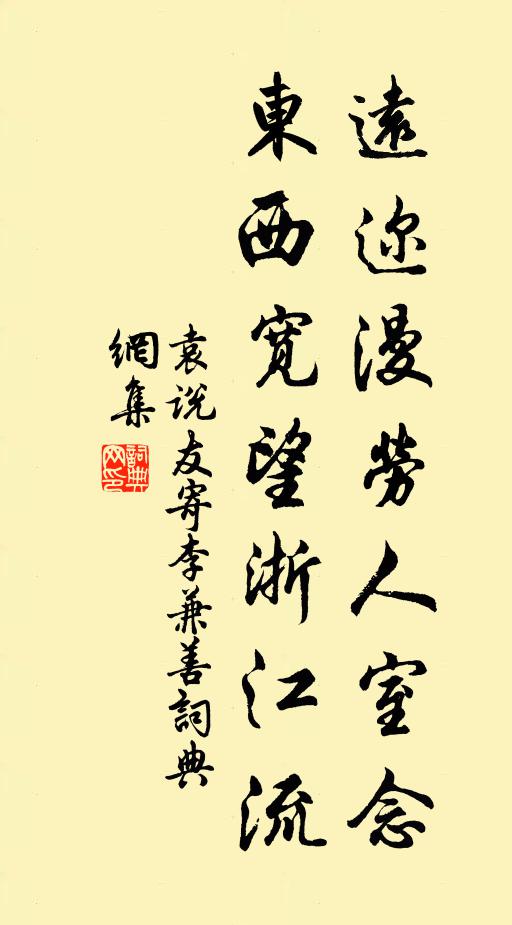 遠迩漫勞人室念
東西寬望浙江流
袁說友寄李兼善詞典
網集
詞典
网印